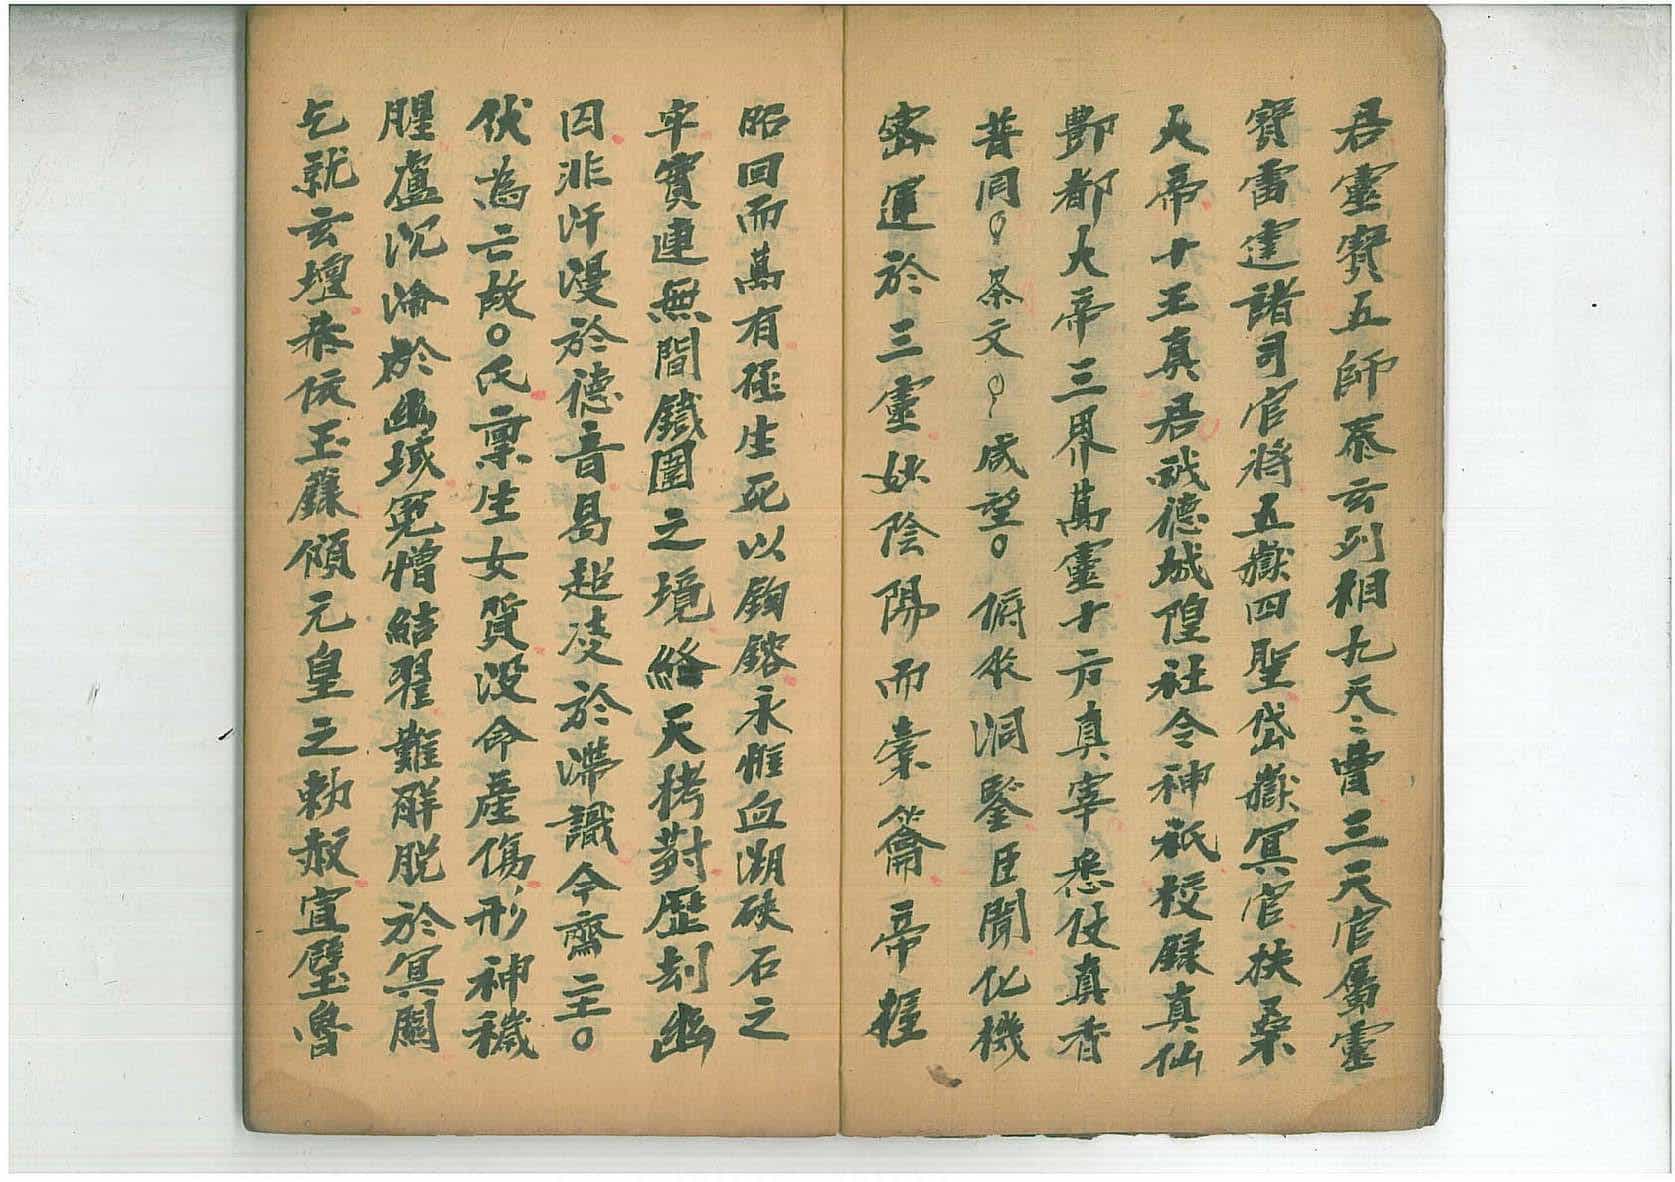 君靈寶五師泰玄列相九天〻曹三天官屬靈
寶雷霆諸司官將五嶽四聖岱嶽冥官扶桑
大帝十王真君戒德城隍社令神祇校錄真仙
酆都大帝三界萬靈十方真宰悉仗真香
普同○茶文○咸望○俯⺢洞鑒臣聞化機
密運於三靈妙陰陽而橐籥帝握
昭回而萬有極生死以鈞鎔永惟血湖硤石之
牢實連無間鐵圍之境絡天拷對歷刻幽
囚非汗漫於德音曷超凌於滯識今齋主○
伏為亡故○氏稟生女質没命產傷形神穢
腥爐沉淪於幽域冤憎結翟難解脱於冥關
乞就玄壇恭依玉籙傾元皇之勅赦宣璧魯